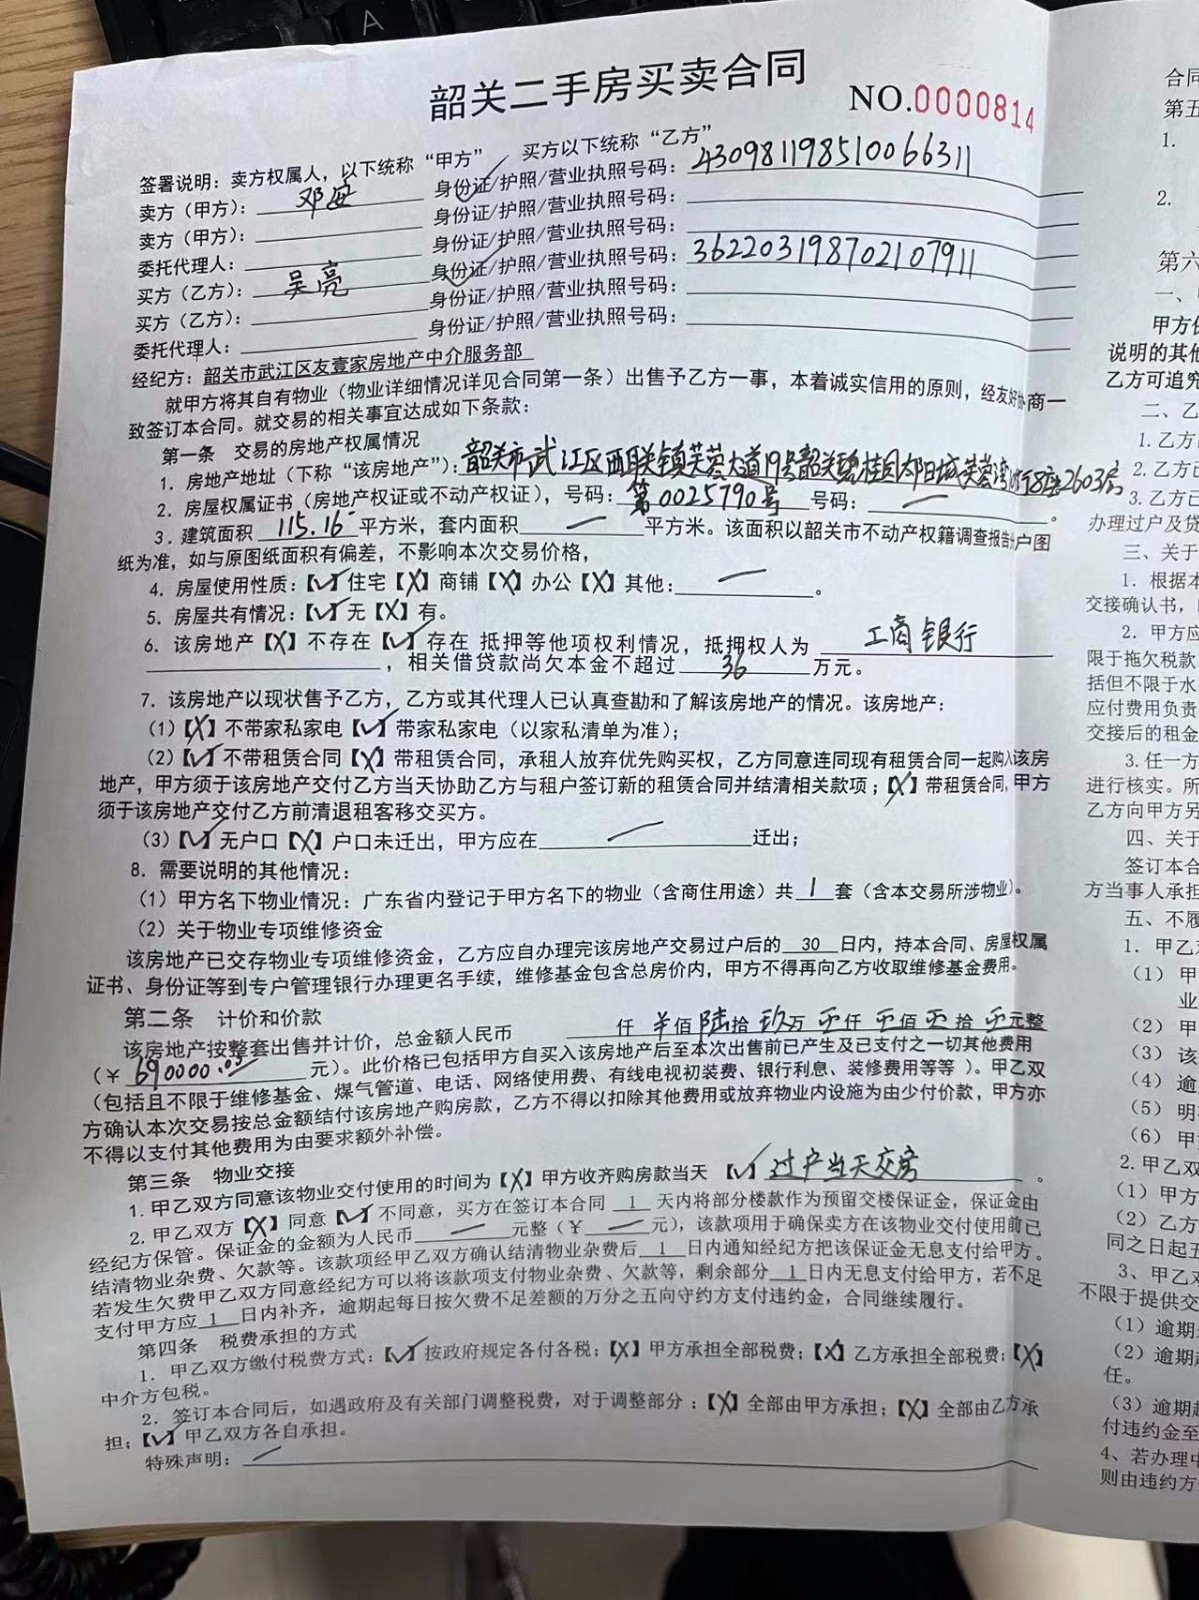 韶关二手房买卖合同
NO.0000814
签署说明：卖方权属人，以下统称“甲方” 买方以下统称“乙方”
卖方（甲方）： 邓 身份证/护照/营业执照号码：430981198510066311
卖方（甲方）： 身份证/护照/营业执照号码：
委托代理人： 身份证/护照/营业执照号码：
买方（乙方）： 吴亮 身份证/护照/营业执照号码：362203198702107911
买方（乙方）： 身份证/护照/营业执照号码：
委托代理人： 身份证/护照/营业执照号码：
经纪方：韶关市武江区友壹家房地产中介服务部
就甲方将其自有物业（物业详细情况详见合同第一条）出售予乙方一事，本着诚实信用的原则，经友好协商一
致签订本合同。就交易的相关事宜达成如下条款：
第一条 交易的房地产权属情况
1．房地产地址（下称“该房地产”）：韶关市武江区西联镇芙蓉大道19号韶关碧桂园太阳城芙蓉湾 8座2603房
2．房屋权属证书（房地产权证或不动产权证），号码：第0025790号 号码：— 。
3．建筑面积 115.16 平方米，套内面积 — 平方米。该面积以韶关市不动产权籍调查报告分户图
纸为准，如与原图纸面积有偏差，不影响本次交易价格，
4．房屋使用性质：【✓】住宅【X】商铺【X】办公【X】其他：— 。
5．房屋共有情况：【✓】无【X】有。
6．该房地产【X】不存在【✓】存在 抵押等他项权利情况，抵押权人为 工商银行
，相关借贷款尚欠本金不超过 36 万元。
7．该房地产以现状售予乙方，乙方或其代理人已认真查勘和了解该房地产的情况。该房地产：
（1）【X】不带家私家电【✓】带家私家电（以家私清单为准）；
（2）【✓】不带租赁合同【X】带租赁合同，承租人放弃优先购买权，乙方同意连同现有租赁合同一起购入该房
地产，甲方须于该房地产交付乙方当天协助乙方与租户签订新的租赁合同并结清相关款项；【X】带租赁合同，甲方
须于该房地产交付乙方前清退租客移交买方。
（3）【✓】无户口【X】户口未迁出，甲方应在 — 迁出；
8．需要说明的其他情况：
（1）甲方名下物业情况：广东省内登记于甲方名下的物业（含商住用途）共 1 套（含本交易所涉物业）。
（2）关于物业专项维修资金
该房地产已交存物业专项维修资金，乙方应自办理完该房地产交易过户后的 30 日内，持本合同、房屋权属
证书、身份证等到专户管理银行办理更名手续，维修基金包含总房价内，甲方不得再向乙方收取维修基金费用。
第二条 计价和价款
该房地产按整套出售并计价，总金额人民币 仟 佰 陆 拾 玖 万 仟 佰 拾 元整
（￥ 690000.00 元）。此价格已包括甲方自买入该房地产后至本次出售前已产生及已支付之一切其他费用
（包括且不限于维修基金、煤气管道、电话、网络使用费、有线电视初装费、银行利息、装修费用等等）。甲乙双
方确认本次交易按总金额结付该房地产购房款，乙方不得以扣除其他费用或放弃物业内设施为由少付价款，甲方亦
不得以支付其他费用为由要求额外补偿。
第三条 物业交接
1．甲乙双方同意该物业交付使用的时间为【X】甲方收齐购房款当天 【✓】过户当天交房 。
2．甲乙双方【X】同意【✓】不同意，买方在签订本合同 1 天内将部分楼款作为预留交楼保证金，保证金由
经纪方保管。保证金的金额为人民币 — 元整（￥ — 元），该款项用于确保卖方在该物业交付使用前已
结清物业杂费、欠款等。该款项经甲乙双方确认结清物业杂费后 1 日内通知经纪方把该保证金无息支付给甲方。
若发生欠费甲乙双方同意经纪方可以将该款项支付物业杂费、欠款等，剩余部分 1 日内无息支付给甲方，若不足
支付甲方应 1 日内补齐，逾期起每日按欠费不足差额的万分之五向守约方支付违约金，合同继续履行。
第四条 税费承担的方式
1．甲乙双方缴付税费方式：【✓】按政府规定各付各税；【X】甲方承担全部税费；【X】乙方承担全部税费；【X】
中介方包税。
2．签订本合同后，如遇政府及有关部门调整税费，对于调整部分：【X】全部由甲方承担；【X】全部由乙方承
担；【✓】甲乙双方各自承担。
特殊声明：—
合同
第五
1.
2.
第六
一、
甲方
说明的其他
乙方可追究
二、乙
1.乙方
2.乙方已
3.乙方已
办理过户及贷
三、关于
1．根据本
交接确认书，
2．甲方应
限于拖欠税款
括但不限于水
应付费用负责
交接后的租金
3.任一方
进行核实。所
乙方向甲方另
四、关于
签订本合
方当事人承担
五、不履
1．甲乙
（1）甲
业
（2）甲
（3）该
（4）逾
（5）明
（6）甲
2.甲乙双
（1）甲方
（2）乙方
同之日起五
3、甲乙双
不限于提供交
（1）逾期
（2）逾期
任。
（3）逾期
付违约金至
4、若办理中
则由违约方